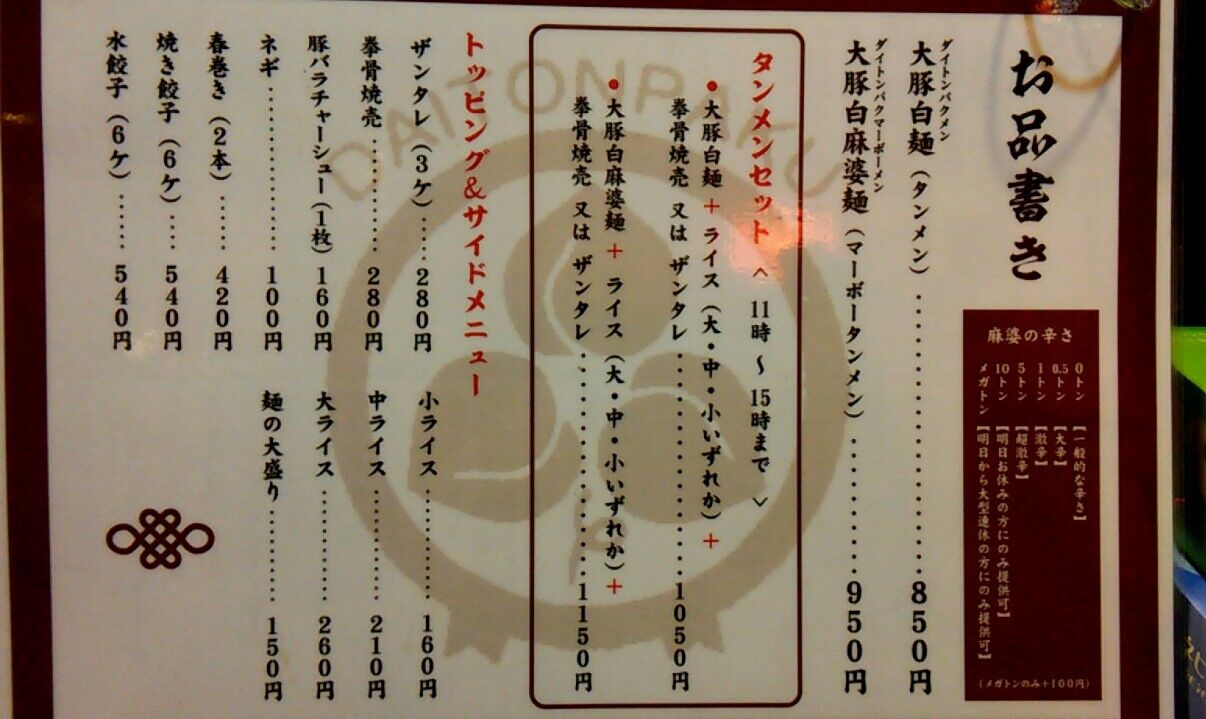 お品書き
麻婆の辛さ
0トン 【一般的な辛さ】
0.5トン 【大辛】
1トン 【激辛】
5トン 【超激辛】
10トン 【明日お休みの方にのみ提供可】
メガトン 【明日から大型連休の方にのみ提供可】
(メガトンのみ+100円)
ダイトンパクメン
大豚白麺(タンメン)・・・・・・・・・・・・850円
ダイトンパクマーボーメン
大豚白麻婆麺(マーボータンメン)・・・・・・・・950円
タンメンセット〈11時～15時まで〉
●大豚白麺+ライス(大・中・小いずれか)+
拳骨焼売 又は ザンタレ・・・・・・・・・・・・1050円
●大豚白麻婆麺+ライス(大・中・小いずれか)+
拳骨焼売 又は ザンタレ・・・・・・・・・・・・1150円
トッピング&サイドメニュー
ザンタレ(3ケ)・・・・・280円
拳骨焼売・・・・・・・・280円
豚バラチャーシュー(1枚)160円
ネギ・・・・・・・・・・100円
春巻き(2本)・・・・・・420円
焼き餃子(6ケ)・・・・・540円
水餃子(6ケ)・・・・・・540円
小ライス・・・・・・・・160円
中ライス・・・・・・・・210円
大ライス・・・・・・・・260円
麺の大盛り・・・・・・・150円
DAITONPAKU